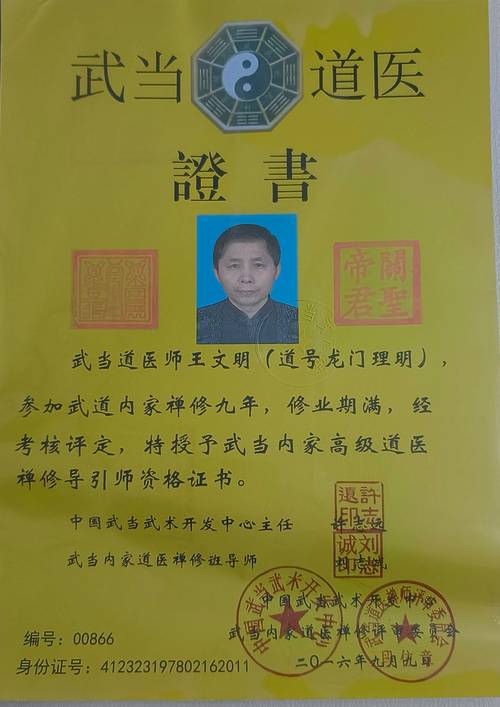 武当 道医
證書
關聖
帝君
武当道医师王文明（道号龙门理明），
参加武道内家禅修九年，修业期满，经
考核评定，特授予武当内家高级道医
禅修导引师资格证书。
中国武当武术开发中心主任 许志远
許志遠印
武当内家道医禅修班导师 刘志诚
刘志诚印
中国武当武术开发中心
武当内家道医禅修评审委员会
二〇一六年九月九日
编号：00866
身份证号：412323197802162011